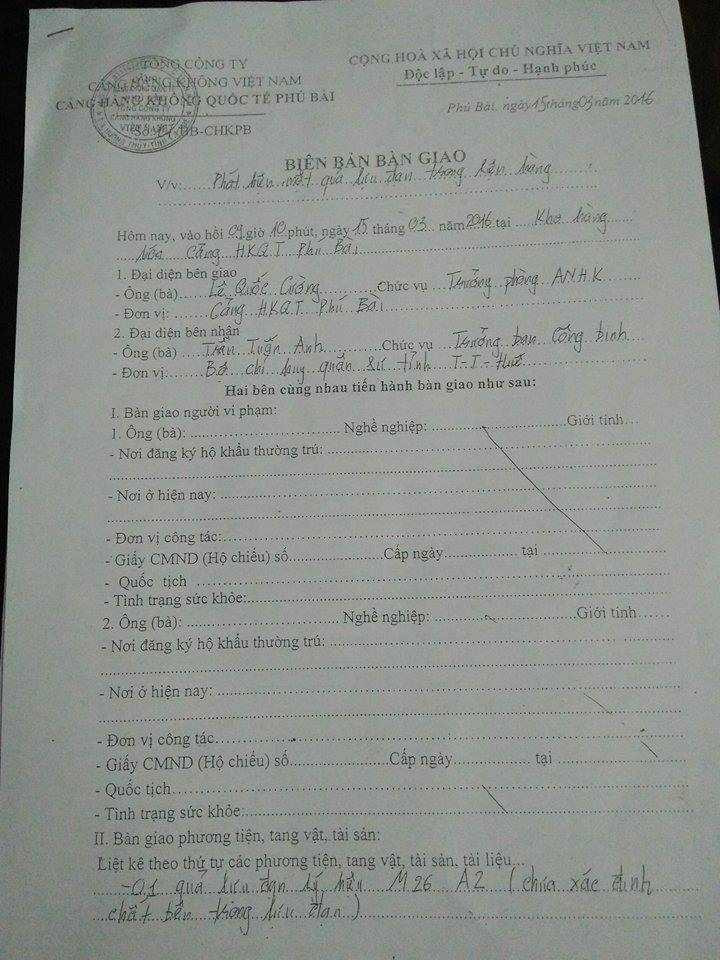 TỔNG CÔNG TY
CẢNG HÀNG KHÔNG VIỆT NAM
CẢNG HÀNG KHÔNG QUỐC TẾ PHÚ BÀI
BB-CHKPB
CỘNG HOÀ XÃ HỘI CHỦ NGHĨA VIỆT NAM
Độc lập - Tự do - Hạnh phúc
Phú Bài, ngày 15 tháng 03 năm 2016
BIÊN BẢN BÀN GIAO
V/v: Phát hiện một quả lựu đạn trong kiện hàng
Hôm nay, vào hồi 09 giờ 10 phút, ngày 15 tháng 03 năm 2016 tại Kho hàng
hóa Cảng HKQT Phú Bài
1. Đại diện bên giao
- Ông (bà) Lê Quốc Cường Chức vụ Trưởng phòng ANHK
- Đơn vị: Cảng HKQT Phú Bài
2. Đại diện bên nhận
- Ông (bà) Trần Tuấn Anh Chức vụ Trưởng ban Công binh
- Đơn vị: Bộ chỉ huy quân sự tỉnh T-T-Huế
Hai bên cùng nhau tiến hành bàn giao như sau:
I. Bàn giao người vi phạm:
1. Ông (bà): Nghề nghiệp: Giới tính
- Nơi đăng ký hộ khẩu thường trú:
- Nơi ở hiện nay:
- Đơn vị công tác:
- Giấy CMND (Hộ chiếu) số Cấp ngày tại
- Quốc tịch
- Tình trạng sức khỏe:
2. Ông (bà): Nghề nghiệp: Giới tính
- Nơi đăng ký hộ khẩu thường trú:
- Nơi ở hiện nay:
- Đơn vị công tác
- Giấy CMND (Hộ chiếu) số Cấp ngày tại
- Quốc tịch
- Tình trạng sức khỏe:
II. Bàn giao phương tiện, tang vật, tài sản:
Liệt kê theo thứ tự các phương tiện, tang vật, tài sản, tài liệu
- 01 quả lựu đạn ký hiệu M26 A2 (chưa xác định
chất bên trong lựu đạn)